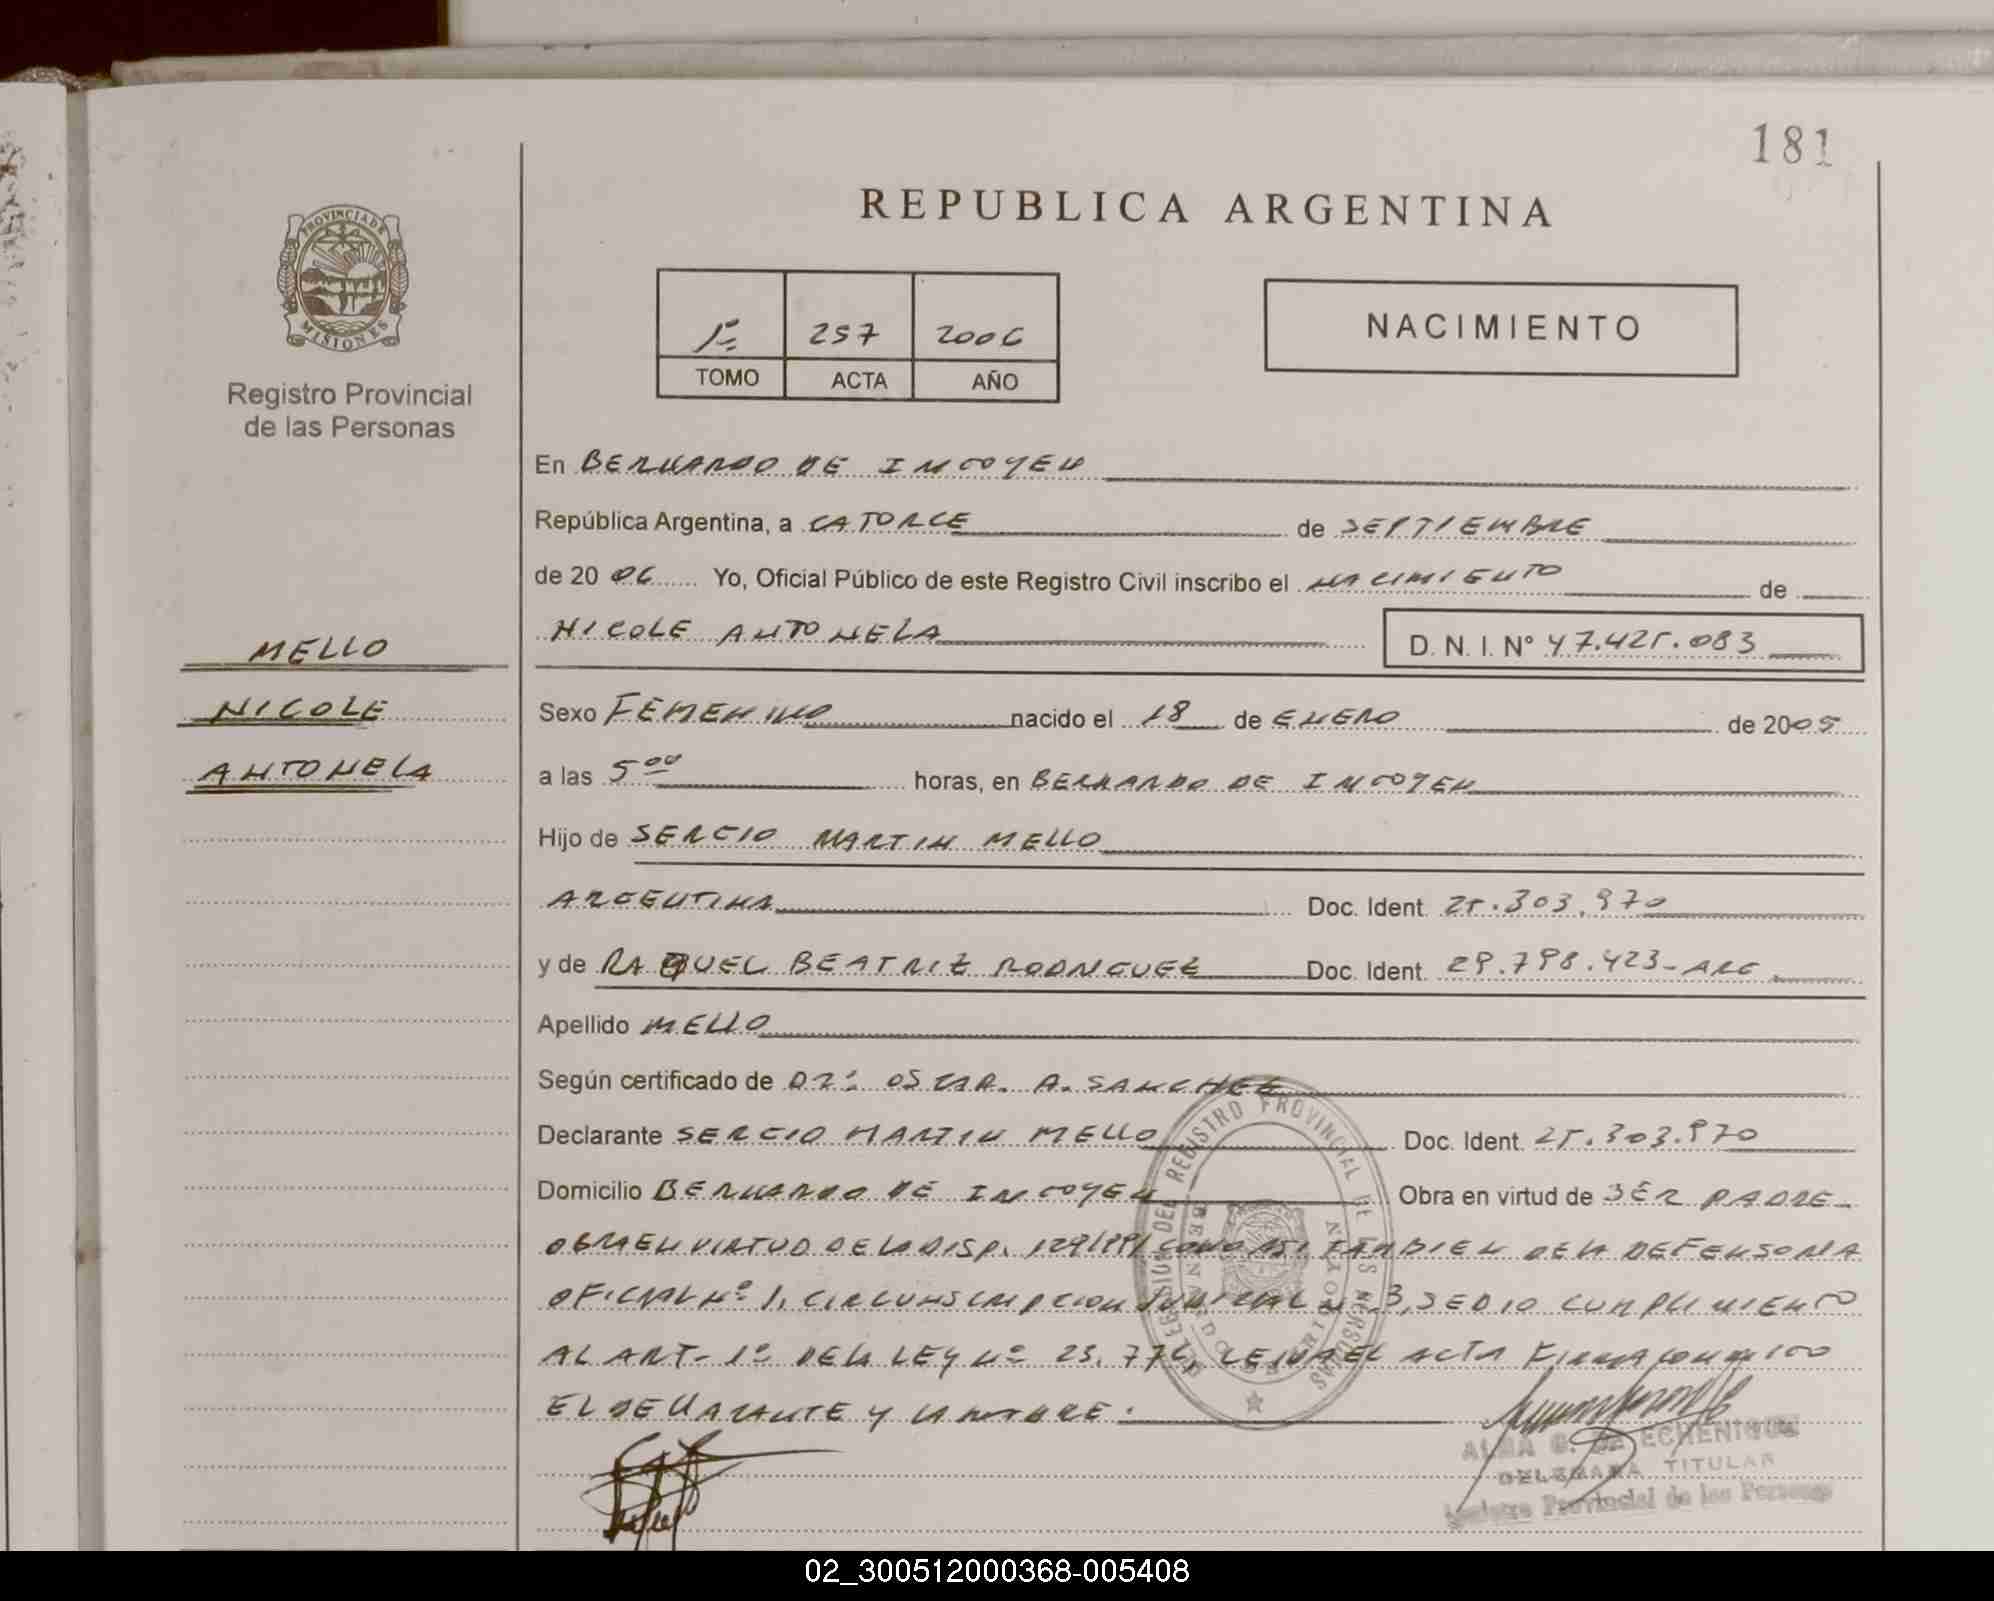 181
PROVINCIA DE
MISIONES
Registro Provincial
de las Personas
REPUBLICA ARGENTINA
1º 257 2006
TOMO ACTA AÑO
NACIMIENTO
En BERNARDO DE IRIGOYEN
República Argentina, a CATORCE de SEPTIEMBRE
de 20 06 Yo, Oficial Público de este Registro Civil inscribo el NACIMIENTO de
NICOLE ANTONELA D. N. I. Nº 47.425.083
MELLO
NICOLE
ANTONELA
Sexo FEMENINO nacido el 18 de ENERO de 2005
a las 5 00 horas, en BERNARDO DE IRIGOYEN
Hijo de SERGIO MARTIN MELLO
ARGENTINA Doc. Ident. 25.303.970
y de RAQUEL BEATRIZ RODRIGUEZ Doc. Ident. 29.798.423 - ARG.
Apellido MELLO
Según certificado de DR: OSCAR. A. SANCHEZ
Declarante SERGIO MARTIN MELLO Doc. Ident. 25.303.970
Domicilio BERNARDO DE IRIGOYEN Obra en virtud de SER PADRE -
OBRA EN VIRTUD DE LA DISP. 129/99/ COMO ASI TAMBIEN DE LA DEFENSORIA
OFICIAL Nº 1, CIRCUNSCRIPCION JUDICIAL Nº 3, SE DIO CUMPLIMIENTO
AL ART- 1º DE LA LEY Nº 23.776, LEIDA EL ACTA FIRMA CONMIGO
EL DECLARANTE Y LA MADRE.
DELEGACION DEL REGISTRO PROVINCIAL DE LAS PERSONAS
BERNARDO DE IRIGOYEN
ALBA G. DE ECHENIQUE
DELEGADA TITULAR
Registro Provincial de las Personas
02_300512000368-005408